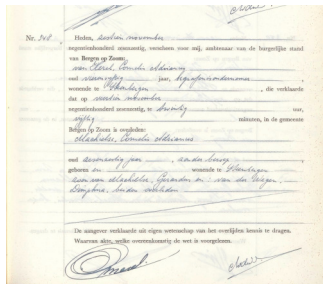 Nr. 748 Heden, zestien november
negentienhonderd zesenzestig, verscheen voor mij, ambtenaar van de burgerlijke stand
van Bergen op Zoom:
van Karel Cornelis Adrianus
oud jaar, begrafenisondernemer
wonende te Steenbergen, die verklaarde
dat op november
negentienhonderd zesenzestig, te twintig uur,
vijftig minuten, in de gemeente
Bergen op Zoom is overleden:
Machielse, Cornelis Adrianus
oud jaar, zonder beroep
geboren en wonende te Steenbergen
zoon van Machielse, Gerardus en van der
Dimphna, beiden overleden
De aangever verklaarde uit eigen wetenschap van het overlijden kennis te dragen.
Waarvan akte, welke overeenkomstig de wet is voorgelezen.